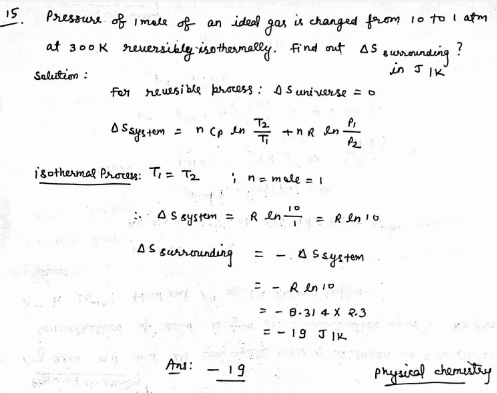 15. Pressure of 1 mole of an ideal gas is changed from 10 to 1 atm
at 300K reversibly isothermally. Find out ΔS surrounding ?
in J/K
Solution :
For reversible process : ΔS universe = 0
ΔS system = n Cp ln T2/T1 + nR ln P1/P2
isothermal Process: T1 = T2 ; n = mole = 1
∴ ΔS system = R ln 10/1 = R ln 10
ΔS surrounding = - ΔS system
= - R ln 10
= - 8.314 X 2.3
= - 19 J/K
Ans: - 19
physical chemistry